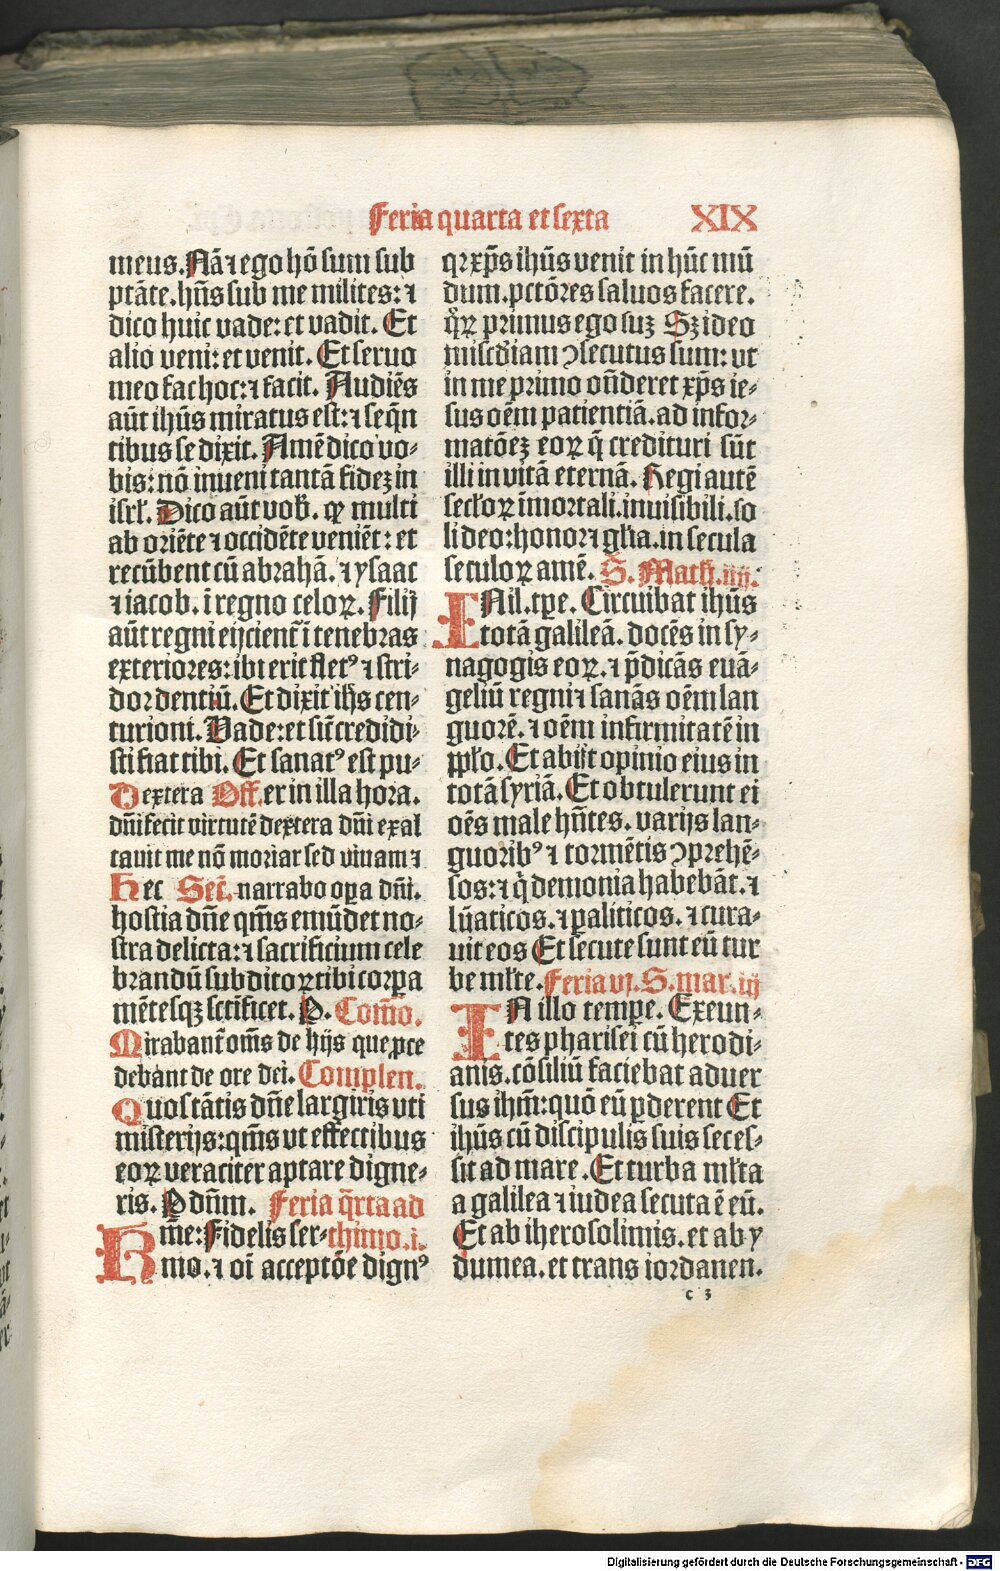 Feria quarta et sexta XIX
meus. Nā ⁊ ego hō sum sub
ptāte. hñs sub me milites: ⁊
dico huic vade: et vadit. Et
alio veni: et venit. Et seruo
meo fac hoc: ⁊ facit. Audiēs
aūt ihūs miratus est: ⁊ seq̄n
tibus se dixit. Amē dico vo-
bis: nō inueni tantā fidez in
isrl̓. Dico aūt vob̓. qꝛ multi
ab oriēte ⁊ occidēte veniēt: et
recūbent cū abrahā. ⁊ ysaac
⁊ iacob. ī regno celoꝝ. Filij
aūt regni eijcient̄ ī tenebras
exteriores: ibi erit fletꝰ ⁊ stri-
dor dentiū. Et dixit ihs̄ cen-
turioni. Vade: et sic̄ credidi-
sti fiat tibi. Et sanatꝰ est pu-
Dextera Off. er in illa hora.
dn̄i fecit virtutē dextera dn̄i exal
tauit me nō moriar sed viuam ⁊
Hec Secr̄. narrabo oꝑa dn̄i.
hostia dn̄e qm̄s emūdet no-
stra delicta: ⁊ sacrificium cele
brandū subditoꝝ tibi corpa
mētesqꝫ sctificet. P. Cōmo.
Mirabant̄ om̄s de hijs que ꝓce
debant de ore dei. Complen.
Quos tātis dn̄e largiris vti
misterijs: qm̄s vt effectibus
eoꝝ veraciter aptare digne-
ris. P dn̄m. Feria q̄rta ad
Km̄e: Fidelis ser- thimo. i.
mo. ⁊ oī acceptōe dignꝰ
qꝛ xp̄s ihūs venit in hūc mū
dum. pctōres saluos facere.
q̄ꝝ primus ego suꝫ Sꝫ ideo
mis̄cdiam ↄsecutus sum: vt
in me primo on̄deret xp̄s ie-
sus oēm patientiā. ad infor-
matōeꝫ eoꝝ q̄ credituri sūt
illi in vitā eternā. Regi autē
secl̓oꝝ īmortali. inuisibili. so
li deo: honor ⁊ gl̓ia. in secula
seculoꝝ amē. S. Math̄. iiij.
INil. tꝑe. Circuibat ihūs
totā galileā. docēs in sy-
nagogis eoꝝ. ⁊ p̄dicās euā-
geliū regni ⁊ sanās oēm lan
guorē. ⁊ oēm infirmitatē in
ppl̓o. Et abijt opinio eius in
totā syriā. Et obtulerunt ei
oēs male hn̄tes. varijs lan-
guoribꝰ ⁊ tormētis ↄprehē-
sos: ⁊ q̄ demonia habebāt. ⁊
lūaticos. ⁊ paliticos. ⁊ cura-
uit eos Et secute sunt eū tur
be ml̓te. Feria vj. S. mar. iij
IN illo tempe. Exeun-
tes pharisei cū herodi-
anis. cōsiliū faciebāt aduer
sus ihm̄: quō eū ꝑderent Et
ihūs cū discipulis suis seces-
sit ad mare. Et turba ml̓ta
a galilea ⁊ iudea secuta ē eū.
Et ab iherosolimis. et ab y
dumea. et trans iordanen.
c 3
Digitalisierung gefördert durch die Deutsche Forschungsgemeinschaft - DFG